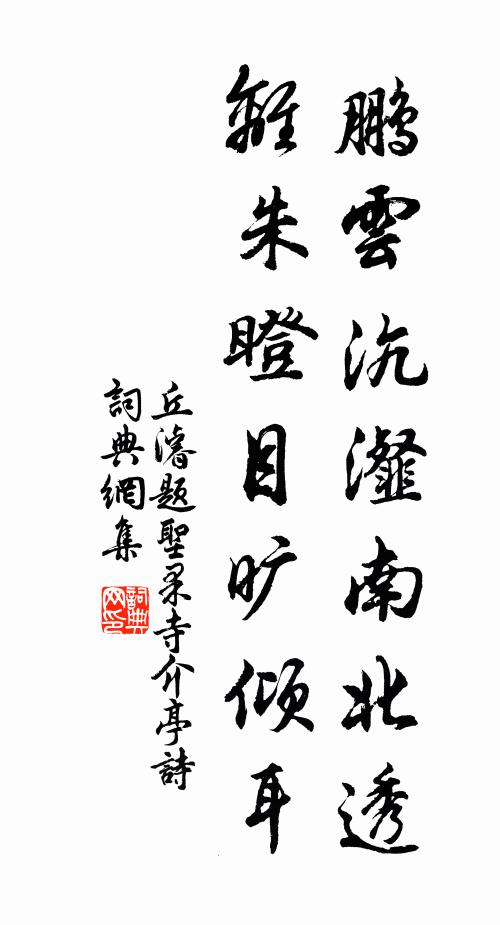 鵬雲沆瀣南北透
離朱瞪目旷傾耳
丘濬題聖果寺介亭詩
詞典網集
詞典网印